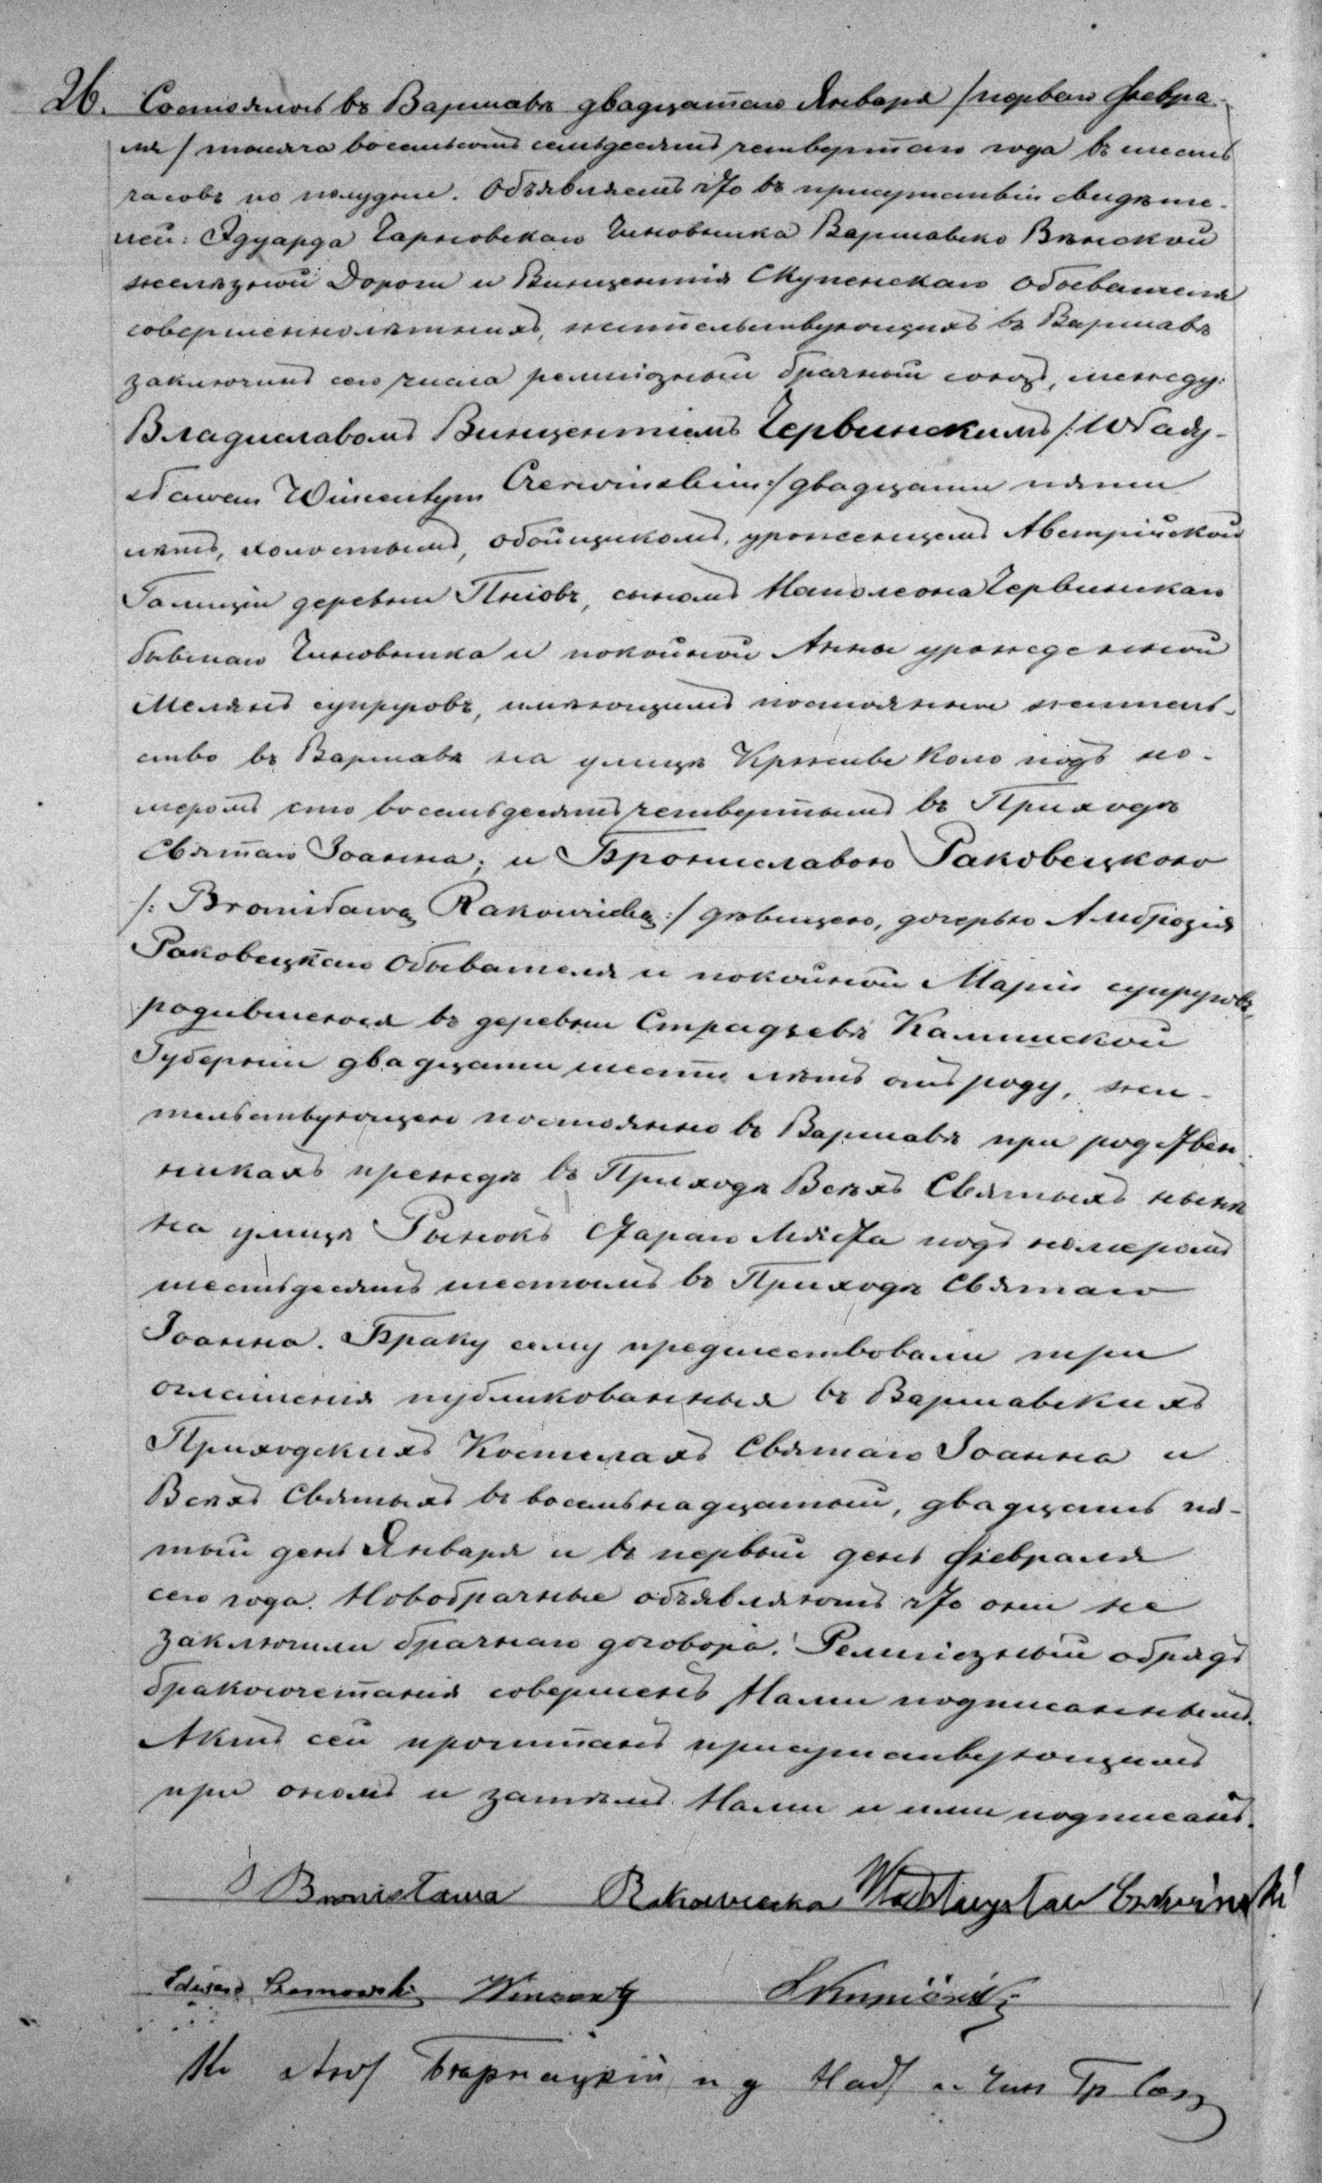 26. Состоялось въ Варшавѣ двадцатаго Января /перваго Февра-
ля/ тысяча восемьсотъ семьдесятъ четвертаго года въ шесть
часовъ по полудни. Объявляемъ что въ присутствіи свидѣте-
лей: Эдуарда Чарновскаго Чиновника Варшавско Вѣнской
желѣзной Дороги и Винцентія Скупенскаго обывателя
совершеннолѣтнихъ, жительствующихъ въ Варшавѣ
заключенъ сего числа религіозный брачный союзъ, между:
Владиславомъ Винцентіемъ Червинскимъ /:Włady-
sławem Wincentym Czerwińskim:/ двадцати пяти
лѣтъ, холостымъ, обойщикомъ, уроженцемъ Австрійской
Галиціи деревни Пніовъ, сыномъ Наполеона Червинскаго
бывшаго Чиновника и покойной Анны урожденной
Мелянъ супруговъ, имѣющимъ постоянное житель-
ство въ Варшавѣ на улицѣ Кршиве Коло подъ но-
меромъ сто восемьдесятъ четвертымъ въ Приходѣ
Святаго Іоанна; и Брониславою Раковецкою
/: Bronisławą Rakowiecką :/ дѣвицею, дочерью Амброзія
Раковецкаго Обывателя и покойной Маріи супруговъ,
родившеюся въ деревни Страдзевъ Калишской
Губерніи двадцати шести лѣтъ отъ роду, жи-
тельствующею постоянно въ Варшавѣ при родствен-
никахъ прежде въ Приходѣ Всѣхъ Святыхъ нынѣ
на улицѣ Рынокъ Стараго Мѣста подъ номеромъ
шестьдесятъ шестомъ въ Приходѣ Святаго
Іоанна. Браку сему предшествовали три
оглашенія публикованныя въ Варшавскихъ
Приходскихъ Костелахъ Святаго Іоанна и
Всѣхъ Святыхъ въ восемьнадцатый, двадцать пя-
тый день Января и въ первый день Февраля
сего года. Новобрачные объявляютъ что они не
заключили брачнаго договора. Религіозный обрядъ
бракосочетанія совершенъ Нами подписаннымъ.
Актъ сей прочитанъ присутствующимъ
при ономъ и затѣмъ Нами и ими подписанъ.
Bronisława Rakowiecka Władysław Czerwiński
Edward Czarnowski Wincenty Skupiénski
Кс